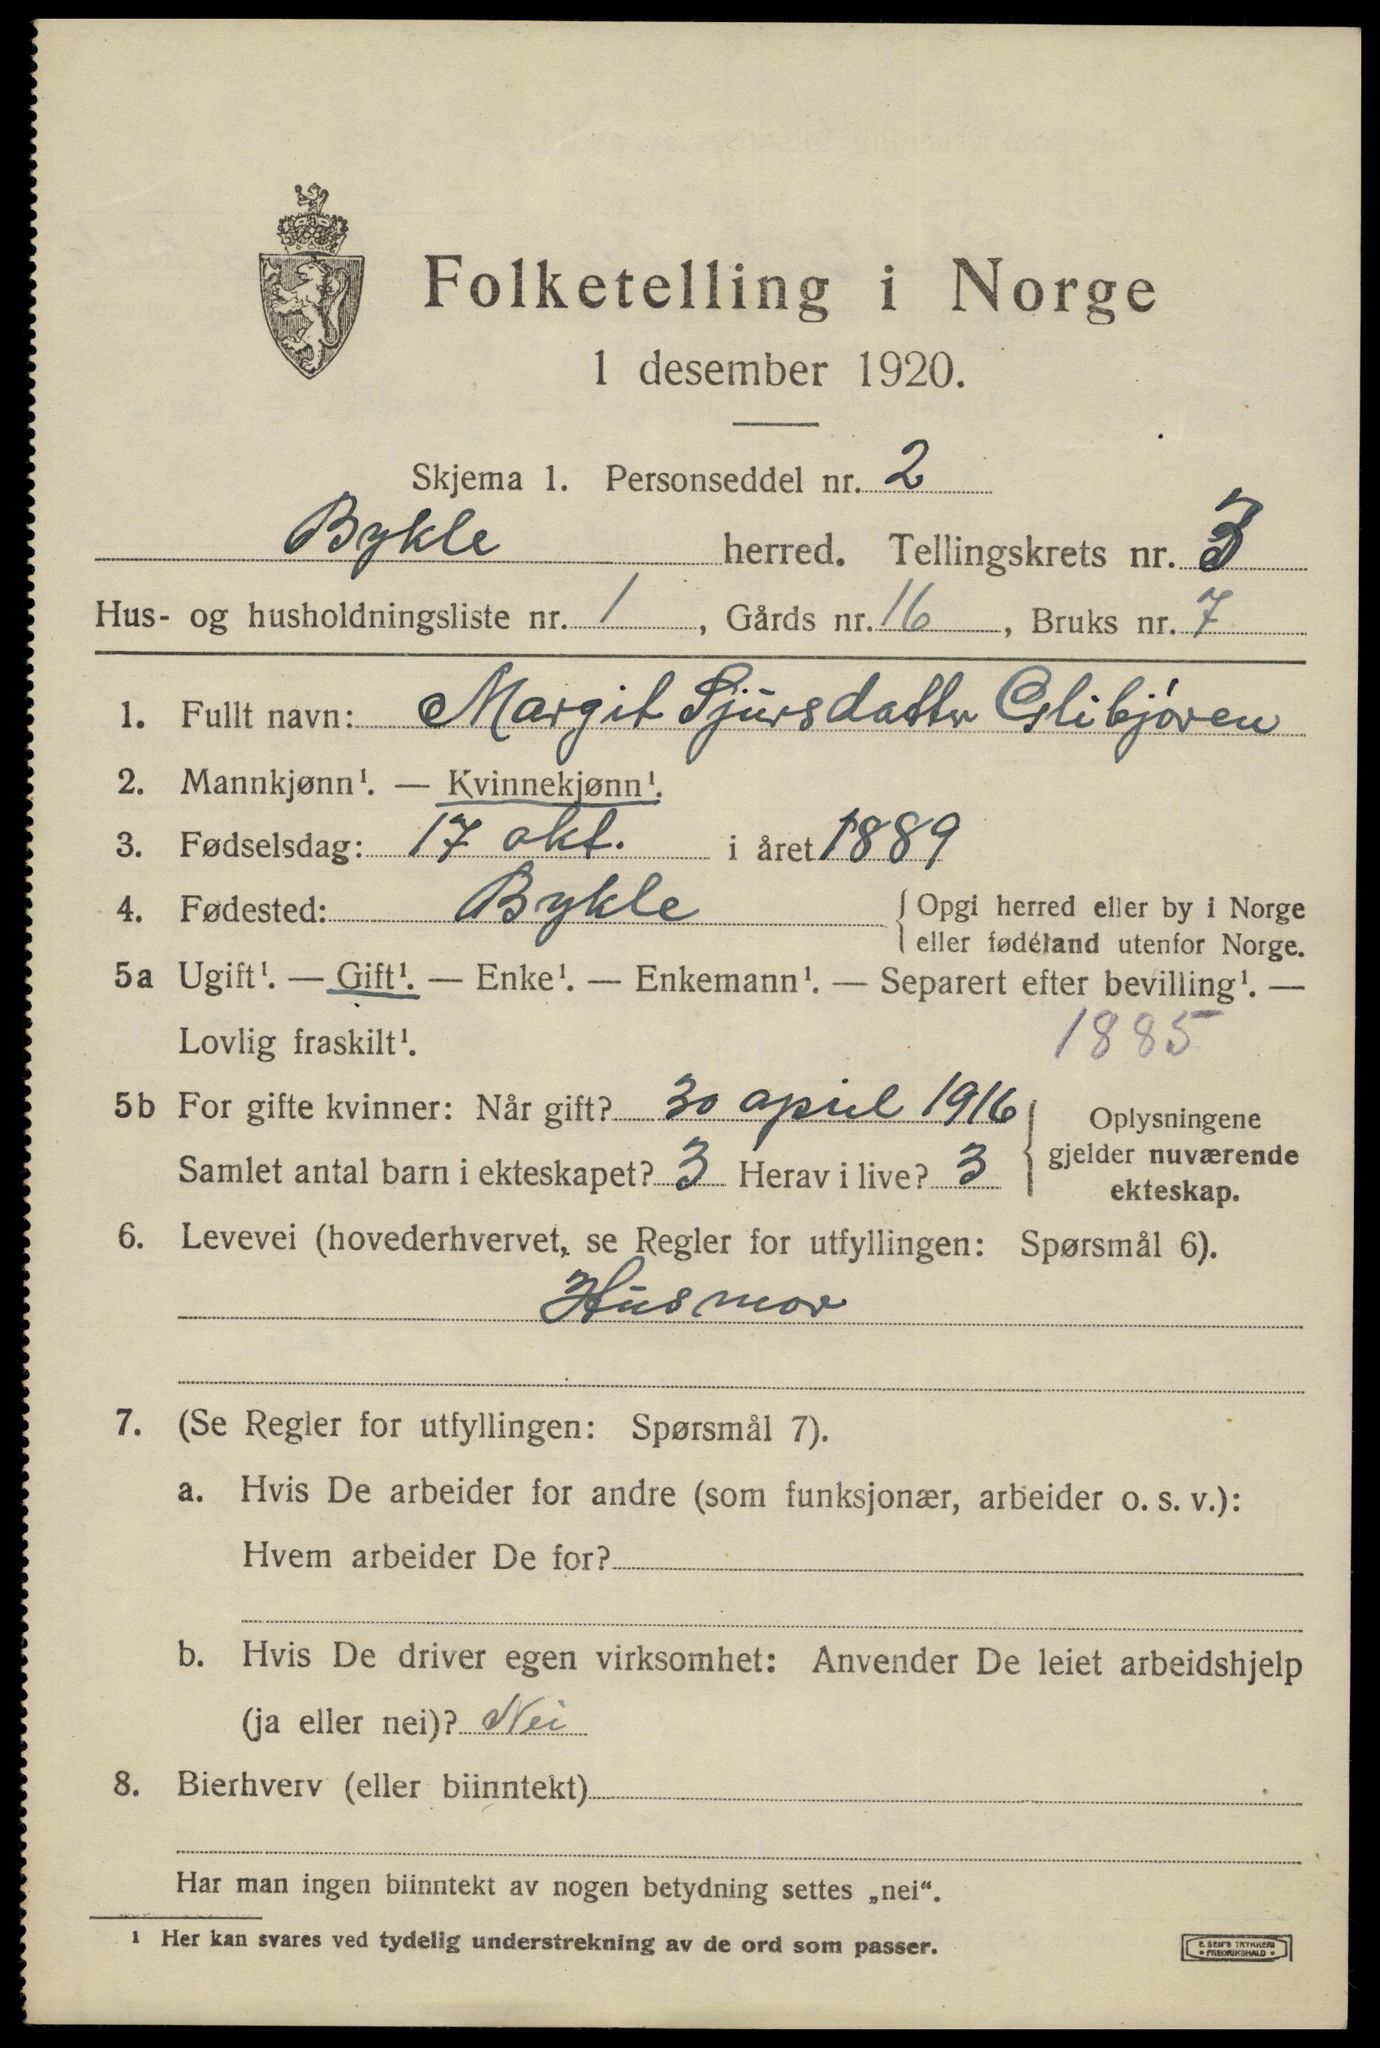 Folketelling i Norge
1 desember 1920.
Skjema 1. Personseddel nr. 2
Bykle herred. Tellingskrets nr. 3
Hus- og husholdningsliste nr. 1, Gårds nr. 16, Bruks nr. 7
1. Fullt navn: Margit Sjursdatter
2. Mannkjønn¹. — Kvinnekjønn¹.
3. Fødselsdag: 17 okt. i året 1889
4. Fødested: Bykle {Opgi herred eller by i Norge
eller fødeland utenfor Norge.
5a Ugift¹. — Gift¹. — Enke¹. — Enkemann¹. — Separert efter bevilling¹. —
Lovlig fraskilt¹. 1885
5b For gifte kvinner: Når gift? 30 april 1916
Samlet antal barn i ekteskapet? 3 Herav i live? 3
{Oplysningene
gjelder nuværende
ekteskap.
6. Levevei (hovederhvervet, se Regler for utfyllingen: Spørsmål 6).
Husmor
7. (Se Regler for utfyllingen: Spørsmål 7).
a. Hvis De arbeider for andre (som funksjonær, arbeider o. s. v.):
Hvem arbeider De for?
b. Hvis De driver egen virksomhet: Anvender De leiet arbeidshjelp
(ja eller nei)? Nei
8. Bierhverv (eller biinntekt)
Har man ingen biinntekt av nogen betydning settes „nei“.
¹ Her kan svares ved tydelig understrekning av de ord som passer.
E. SEM'S TRYKKERI
• FREDRIKSHALD •